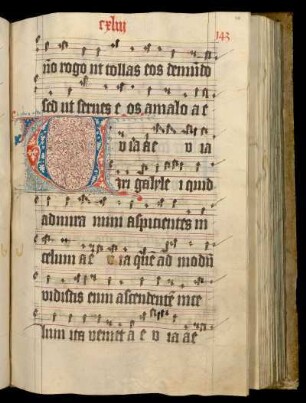 cxliij
143
nō rogo ut tollas eos de mūdo
sed ut serues e os a malo a e
v ia a e v ia
Uiri galyle i quid
admira mini aspicientes in
celum a e v ia que ad modū
vidistis eum ascendentē in ce
lum ita veniet a e v ia a e